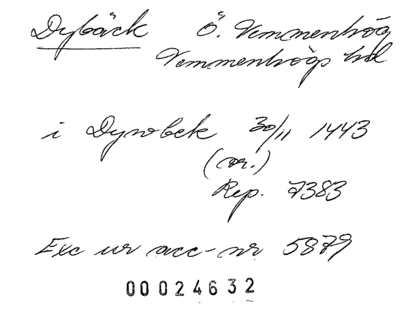 Dybäck Ö. Vemmenhög
Vemmenhögs hd
i Dyrobek 30/11 1443
(or.)
Rep. 7383
Exc ur acc-nr 5879
00024632